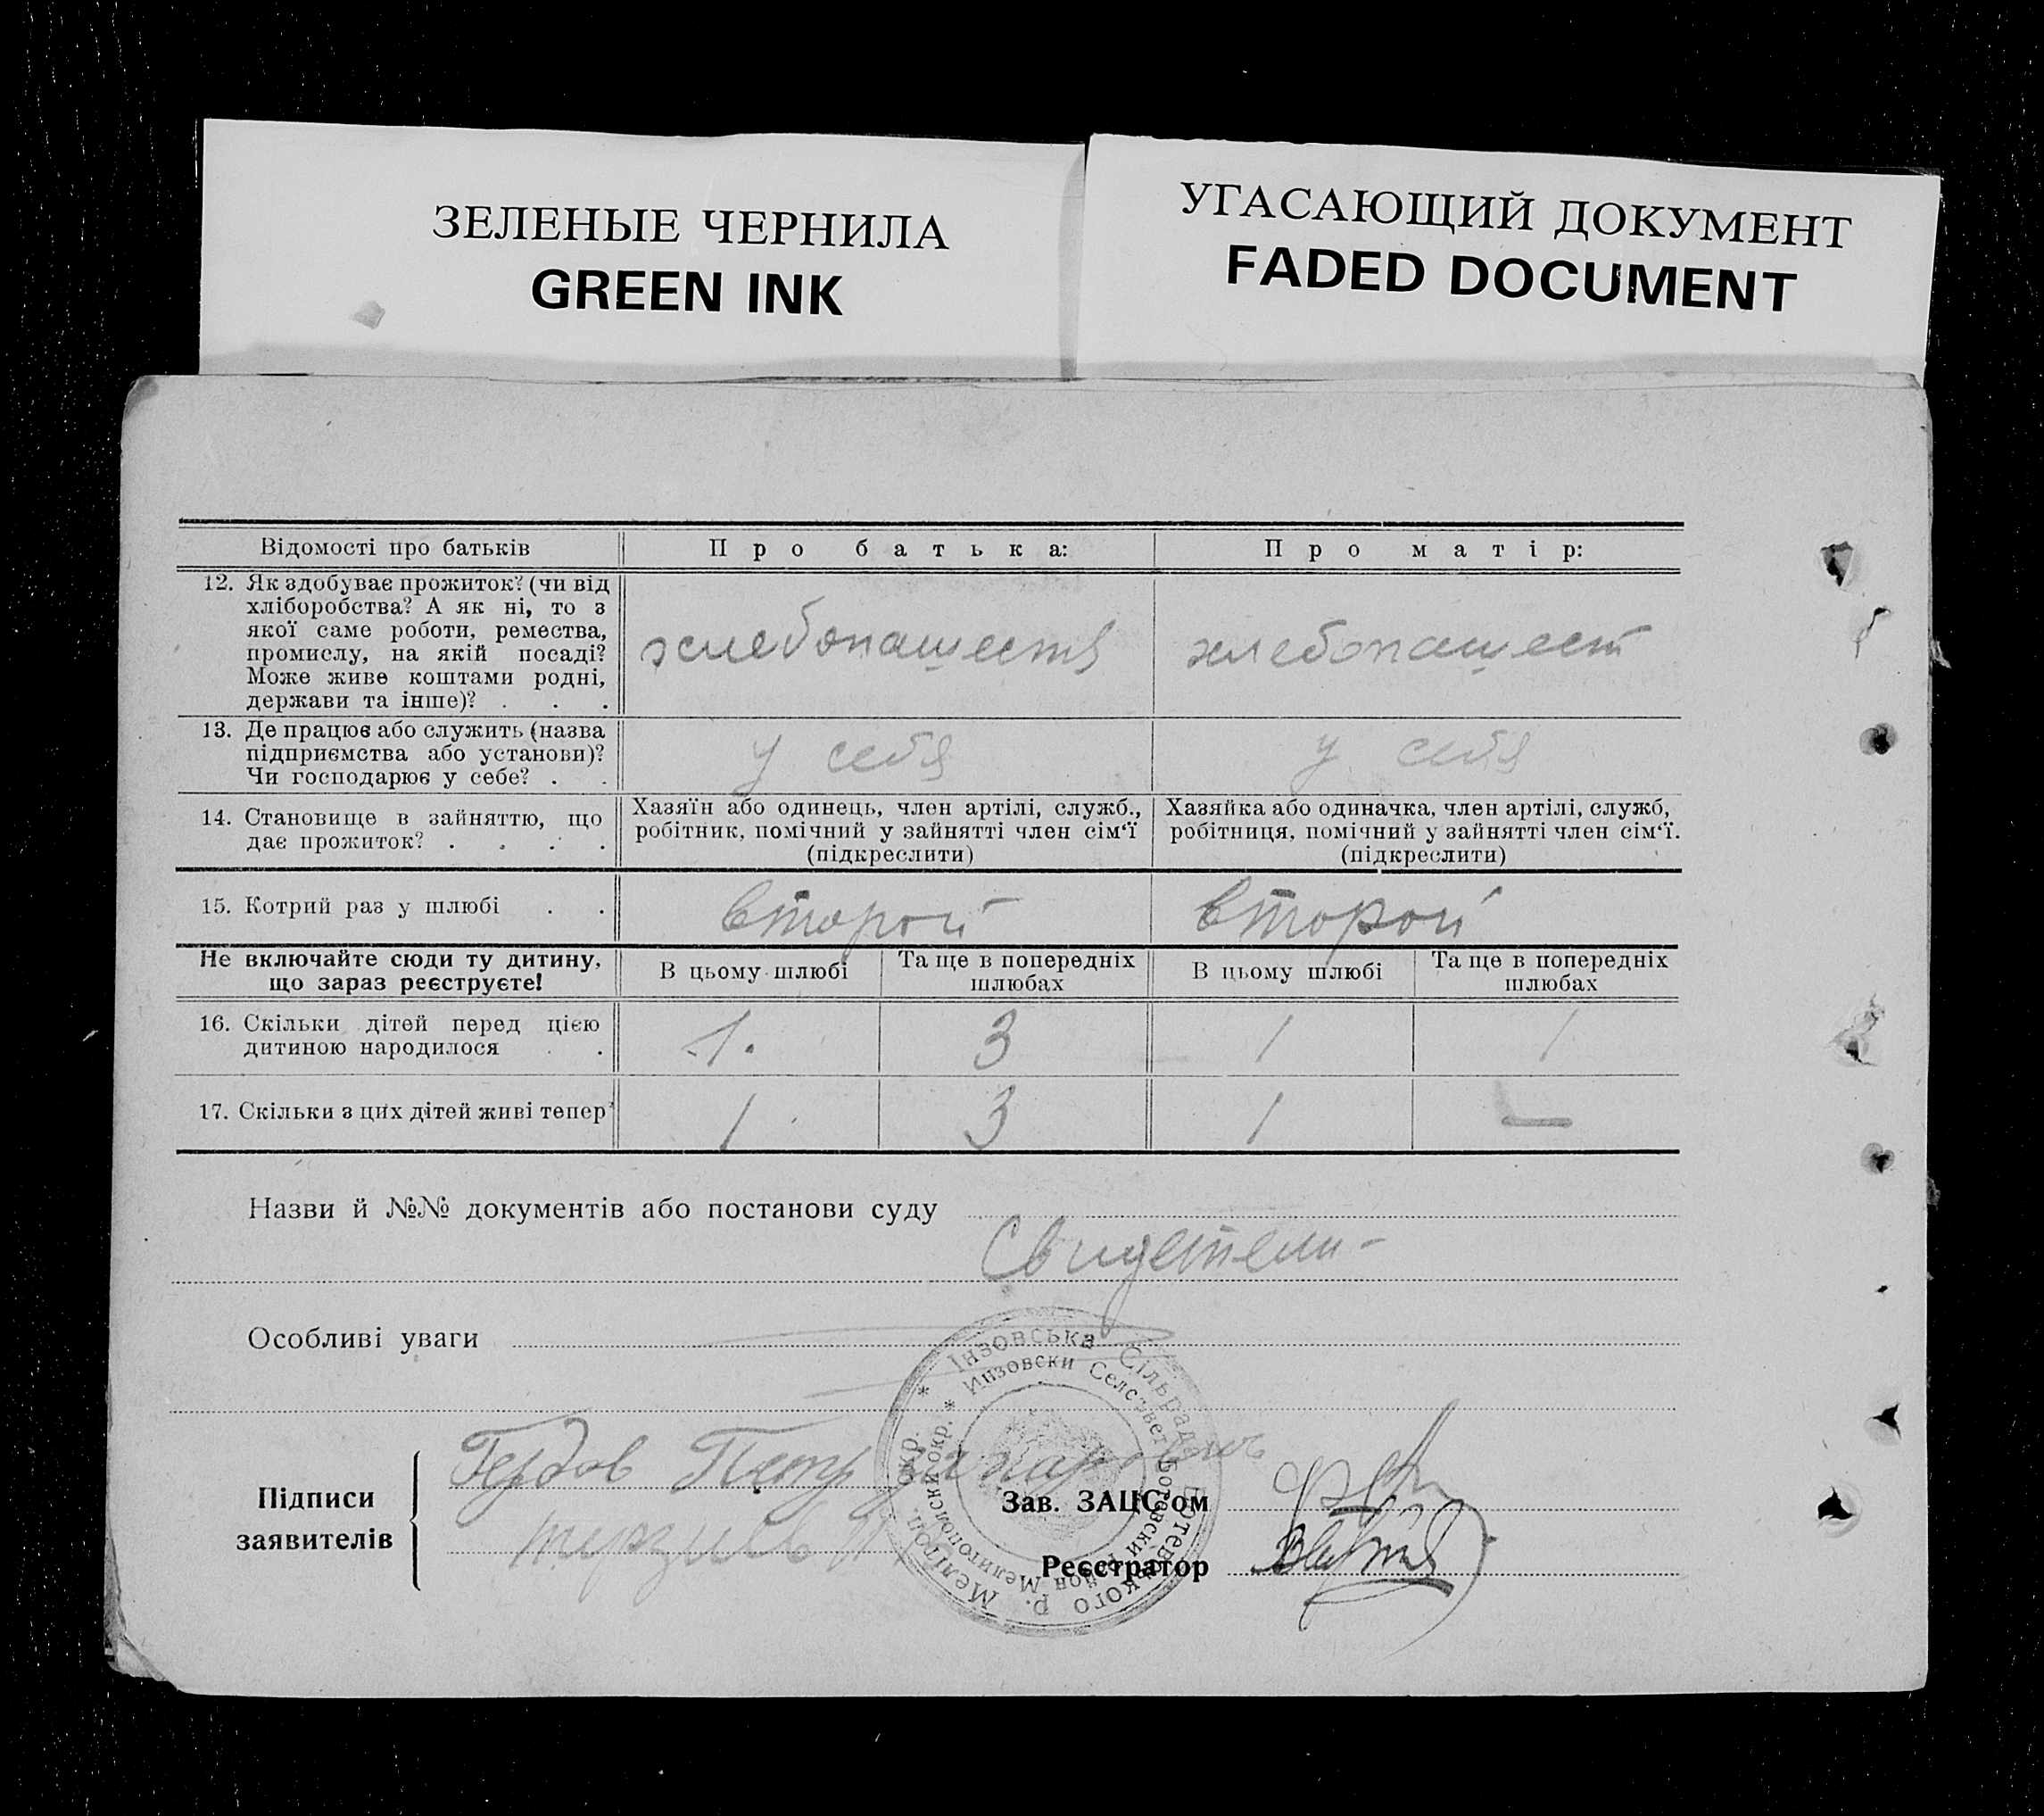 ЗЕЛЕНЫЕ ЧЕРНИЛА
GREEN INK
УГАСАЮЩИЙ ДОКУМЕНТ
FADED DOCUMENT
Відомості про батьків
Про батька:
Про матір:
12. Як здобуває прожиток? (чи від
хліборобства? А як ні, то з
якої саме роботи, ремества,
промислу, на якій посаді?
Може живе коштами родні,
держави та інше)? . . .
хлебопашеств
хлебопашест
13. Де працює або служить (назва
підприємства або установи)?
Чи господарює у себе? . .
у себя
у себя
14. Становище в зайняттю, що
дає прожиток? . . . .
Хазяїн або одинець, член артілі, служб.,
робітник, помічний у зайнятті член сім‘ї
(підкреслити)
Хазяйка або одиначка, член артілі, служб,
робітниця, помічний у зайнятті член сім‘ї.
(підкреслити)
15. Котрий раз у шлюбі . .
второй
второй
Не включайте сюди ту дитину,
що зараз реєструєте!
В цьому шлюбі
Та ще в попередніх
шлюбах
В цьому шлюбі
Та ще в попередніх
шлюбах
16. Скільки дітей перед цією
дитиною народилося . .
1.
3
1
1
17. Скільки з цих дітей живі тепер
1
3
1
—
Назви й №№ документів або постанови суду
Свидетели-
Особливі уваги
* Інзовська Сільрада Ботевського р. Меліtoп. окр.
* Инзовски Селсъвет Ботовски район Мелитополски окр.
Підписи
заявителів
Гердов Петр
Зав. ЗАЦС‘ом
Реєстратор